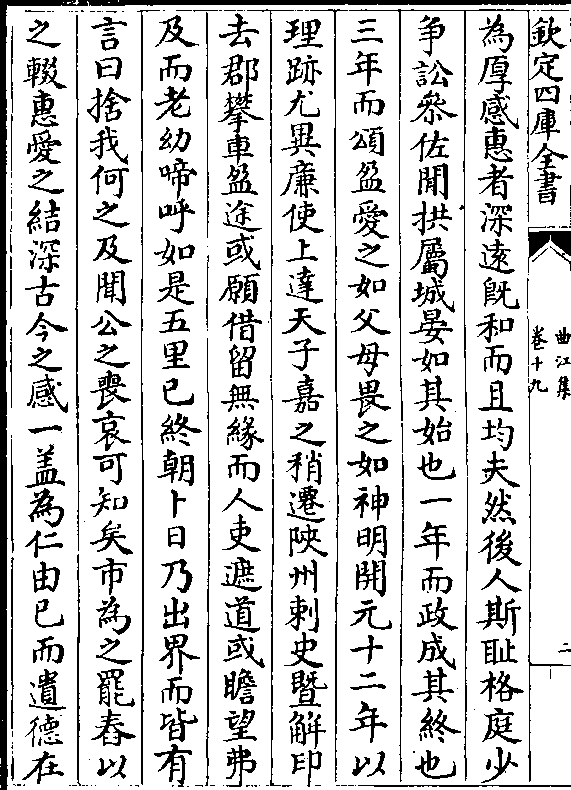 欽定四庫全書
曲江集
卷十九
二
為厚感惠者深遠既和而且均夫然後人斯恥格庭少
争訟叅佐閒拱屬城晏如其始也一年而政成其終也
三年而頌盈愛之如父母畏之如神明開元十二年以
理跡尤異廉使上達天子嘉之稍遷陜州刺史暨解印
去郡攀車盈途或願借留無緣而人吏遮道或瞻望弗
及而老幼啼呼如是五里已終朝卜日乃出界而皆有
言曰捨我何之及聞公之喪哀可知矣市為之罷舂以
之輟惠愛之結深古今之感一盖為仁由已而遺德在